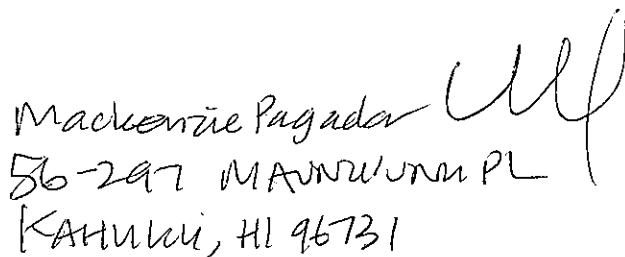 Mackenzie Pagador
56-297 PL
KAHUKU, HI 96731